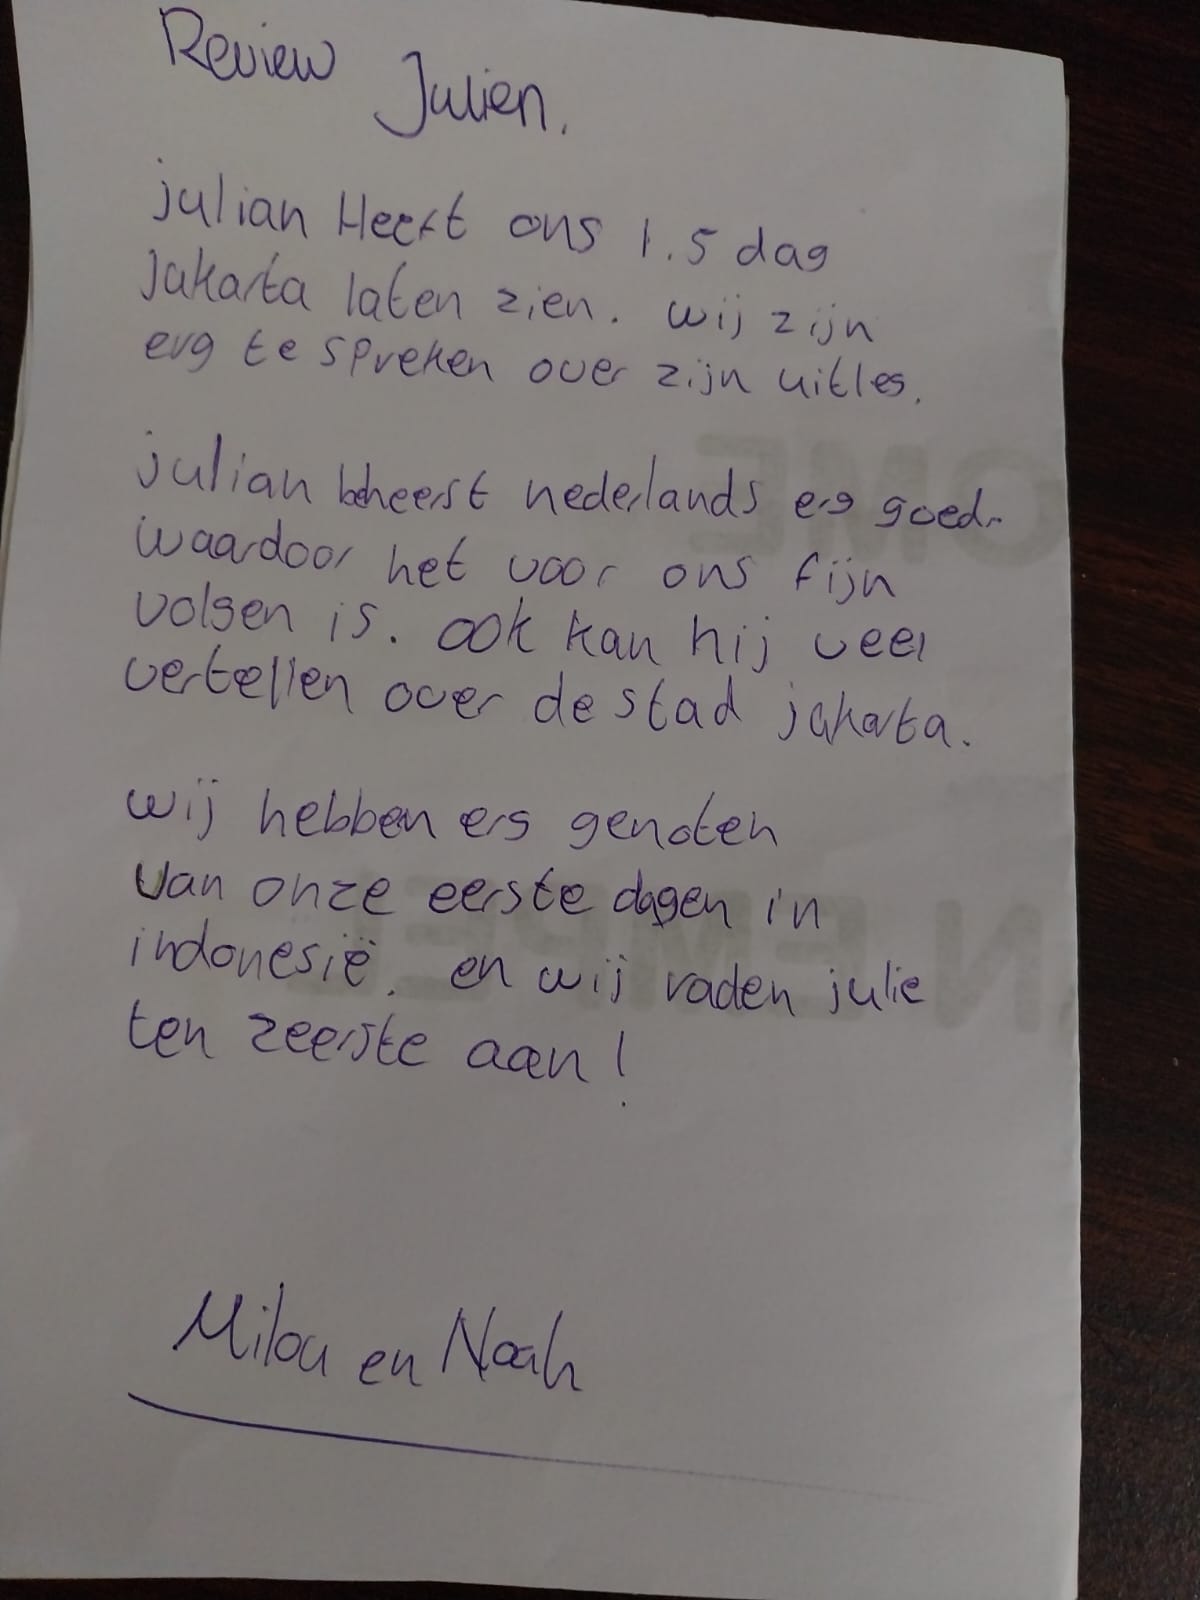 Review Julien.
julian Heeft ons 1.5 dag
Jakarta laten zien. wij zijn
erg te spreken over zijn uitleg.
julian beheerst nederlands erg goed.
waardoor het voor ons fijn
volgen is. ook kan hij veel
vertellen over de stad jakarta.
wij hebben erg genoten
van onze eerste dagen in
indonesië. en wij raden julie
ten zeerste aan!
Milou en Noah